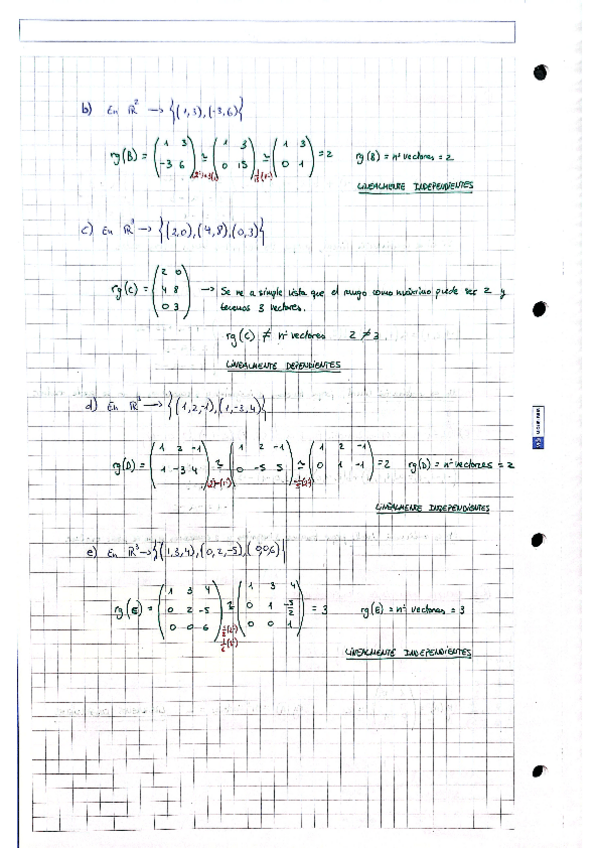 b) En ℝ² → {(1,3),(-3,6)}
rg(B) = (1 3; -3 6) ≃ (1 3; 0 15) ≃ (1 3; 0 1) = 2 rg(B) = nº vectores = 2
LINEALMENTE INDEPENDIENTES
c) En ℝ³ → {(2,0),(4,8),(0,3)}
rg(C) = (2 0; 4 8; 0 3) → Se ve a simple vista que el rango como máximo puede ser 2 y
tenemos 3 vectores.
rg(C) ≠ nº vectores 2 ≠ 3
LINEALMENTE DEPENDIENTES
d) En ℝ³ → {(1,2,-1),(1,-3,4)}
rg(D) = (1 2 -1; 1 -3 4) ≃ (1 2 -1; 0 -5 5) ≃ (1 2 -1; 0 1 -1) = 2 rg(D) = nº vectores = 2
LINEALMENTE INDEPENDIENTES
e) En ℝ³ → {(1,3,4),(0,2,-5),(0,0,6)}
rg(E) = (1 3 4; 0 2 -5; 0 0 6) ≃ (1 3 4; 0 1 -5/2; 0 0 1) = 3 rg(E) = nº vectores = 3
LINEALMENTE INDEPENDIENTES